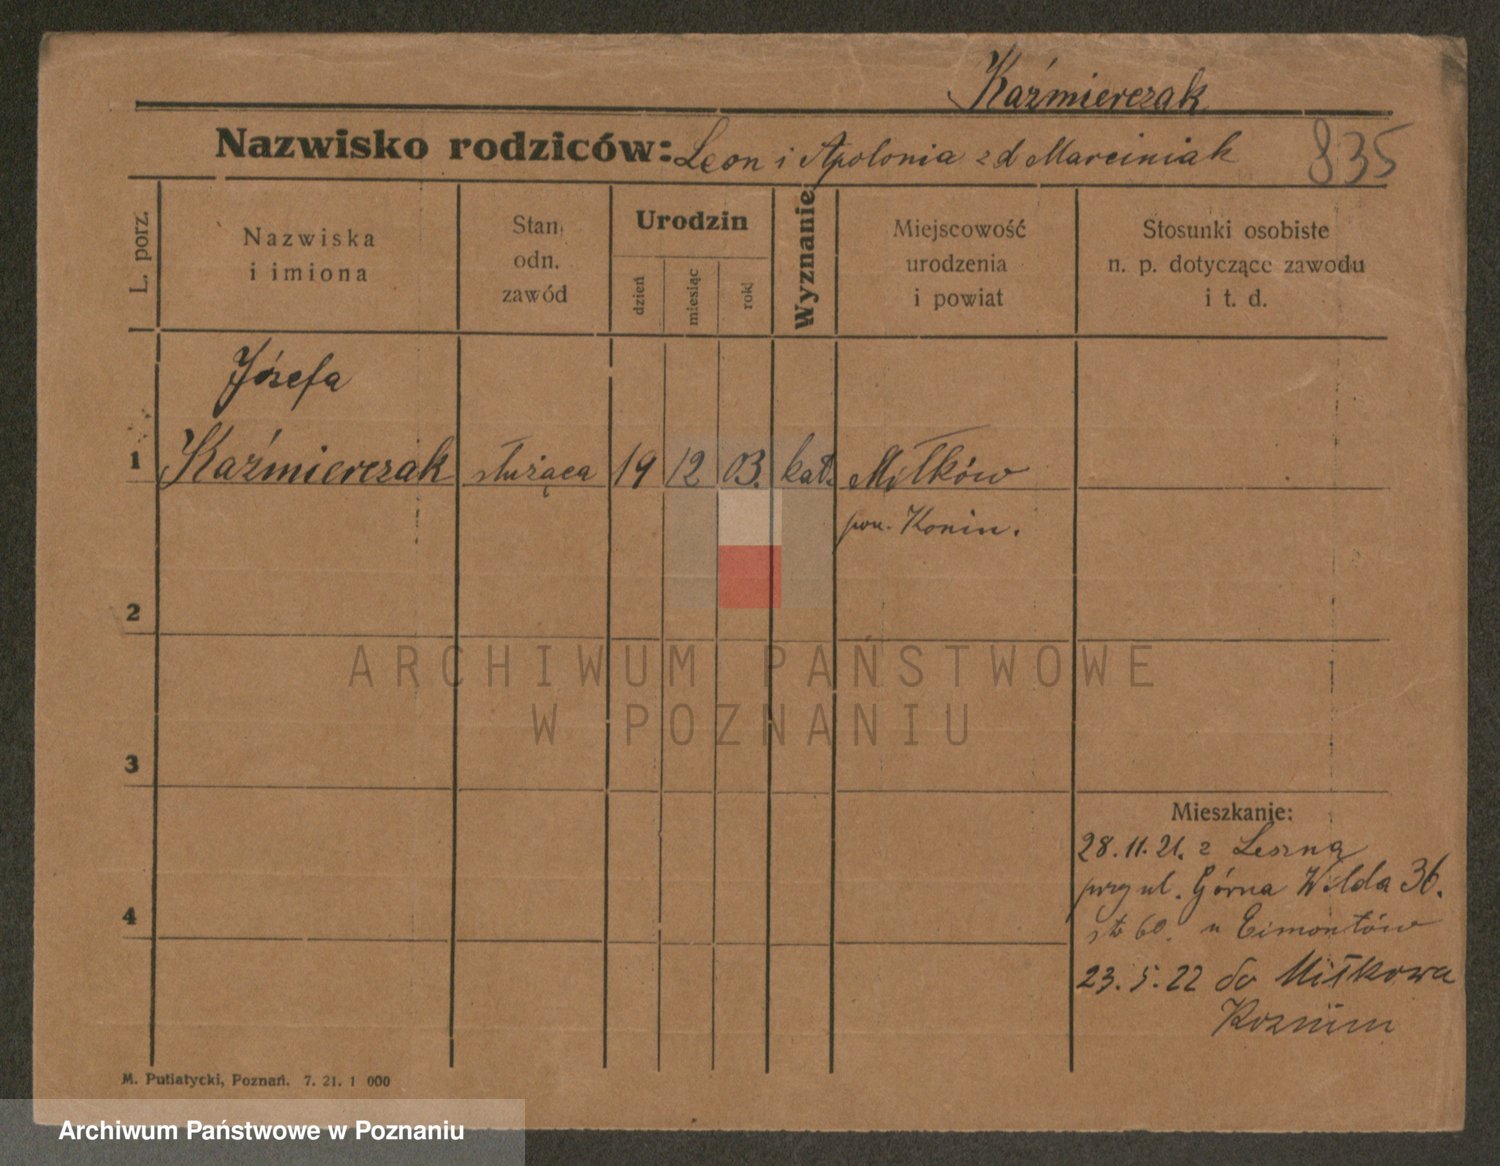 Kaźmierczak
Nazwisko rodziców: Leon i Apolonia zd Marciniak
835
L. porz.
Nazwiska
i imiona
Stan,
odn.
zawód
Urodzin
dzień
miesiąc
rok
Wyznanie
Miejscowość
urodzenia
i powiat
Stosunki osobiste
n. p. dotyczące zawodu
i t. d.
Józefa
1 Kaźmierczak służąca 19 12 03. kat. Miłków
pow. Konin.
2
ARCHIWUM PAŃSTWOWE
W POZNANIU
3
Mieszkanie:
28.11.21. z Leszna
przy ul. Górna Wilda 36.
60. u Eimontów
4
23.5.22 do Miłkowa
M. Putiatycki, Poznań. 7. 21. 1 000
Archiwum Państwowe w Poznaniu